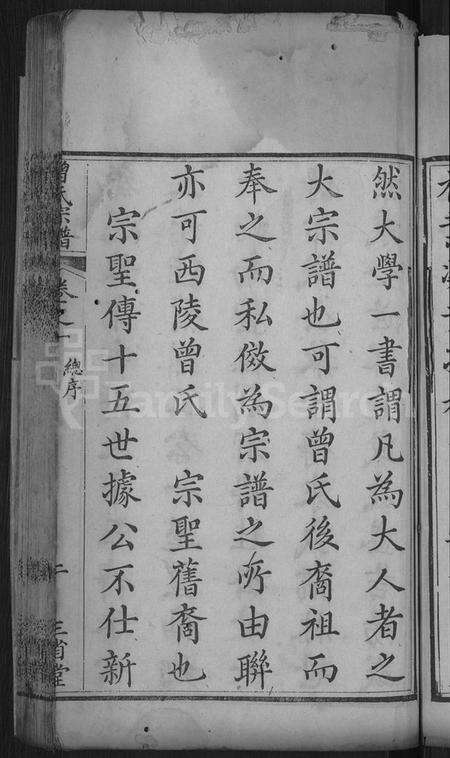 然大學一書謂凡為大人者之
大宗譜也可謂曾氏後裔祖而
奉之而私倣為宗譜之所由聯
亦可西陵曾氏　宗聖舊裔也
宗聖傳十五世據公不仕新
曾氏宗譜　卷之一　總序　三省堂
FamilySearch